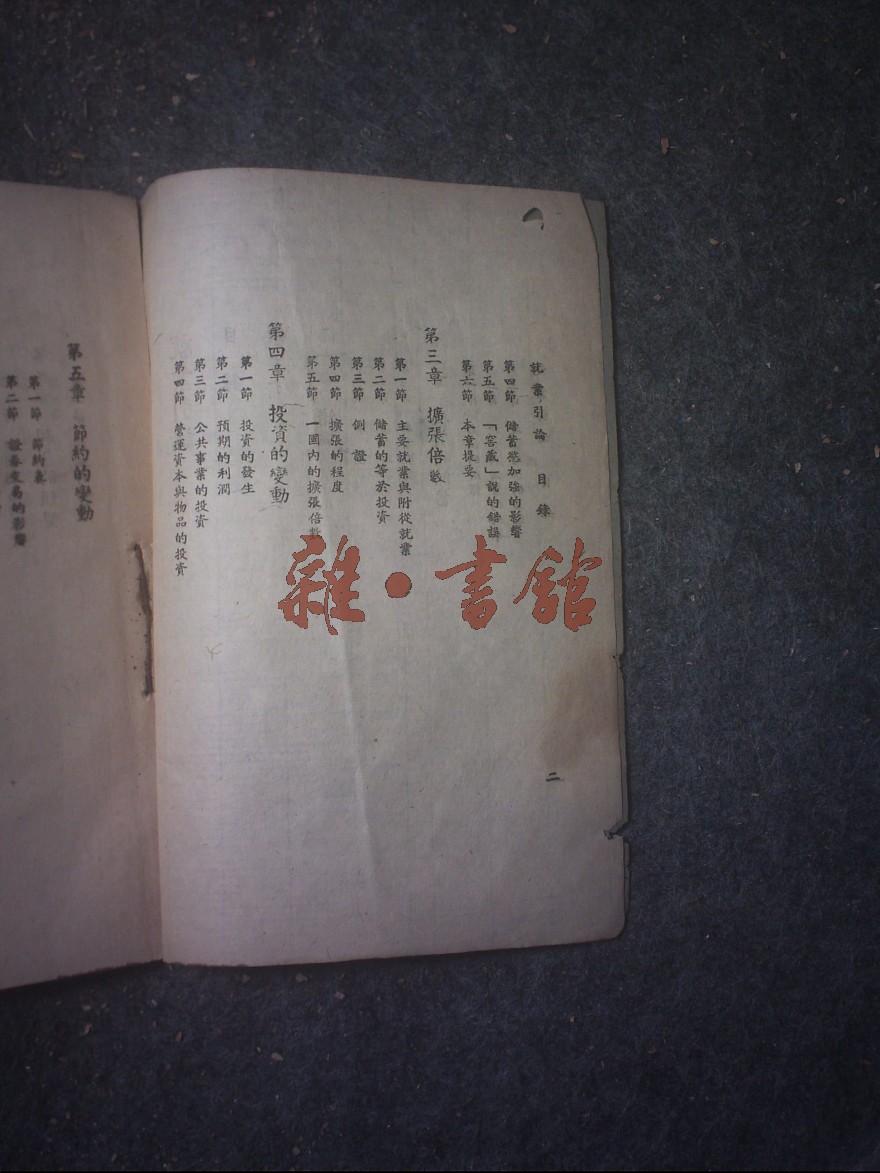 就業引論 目錄
第四節 儲蓄慾加強的影響
第五節 「窖藏」說的錯誤
第六節 本章提要
第三章 擴張倍數
第一節 主要就業與附從就業
第二節 儲蓄的等於投資
第三節 例證
第四節 擴張的程度
第五節 一國內的擴張倍數
第四章 投資的變動
第一節 投資的發生
第二節 預期的利潤
第三節 公共事業的投資
第四節 營運資本與物品的投資
二
第五章 節約的變動
第一節 節約表
第二節 證券交易的影響
雜·書館